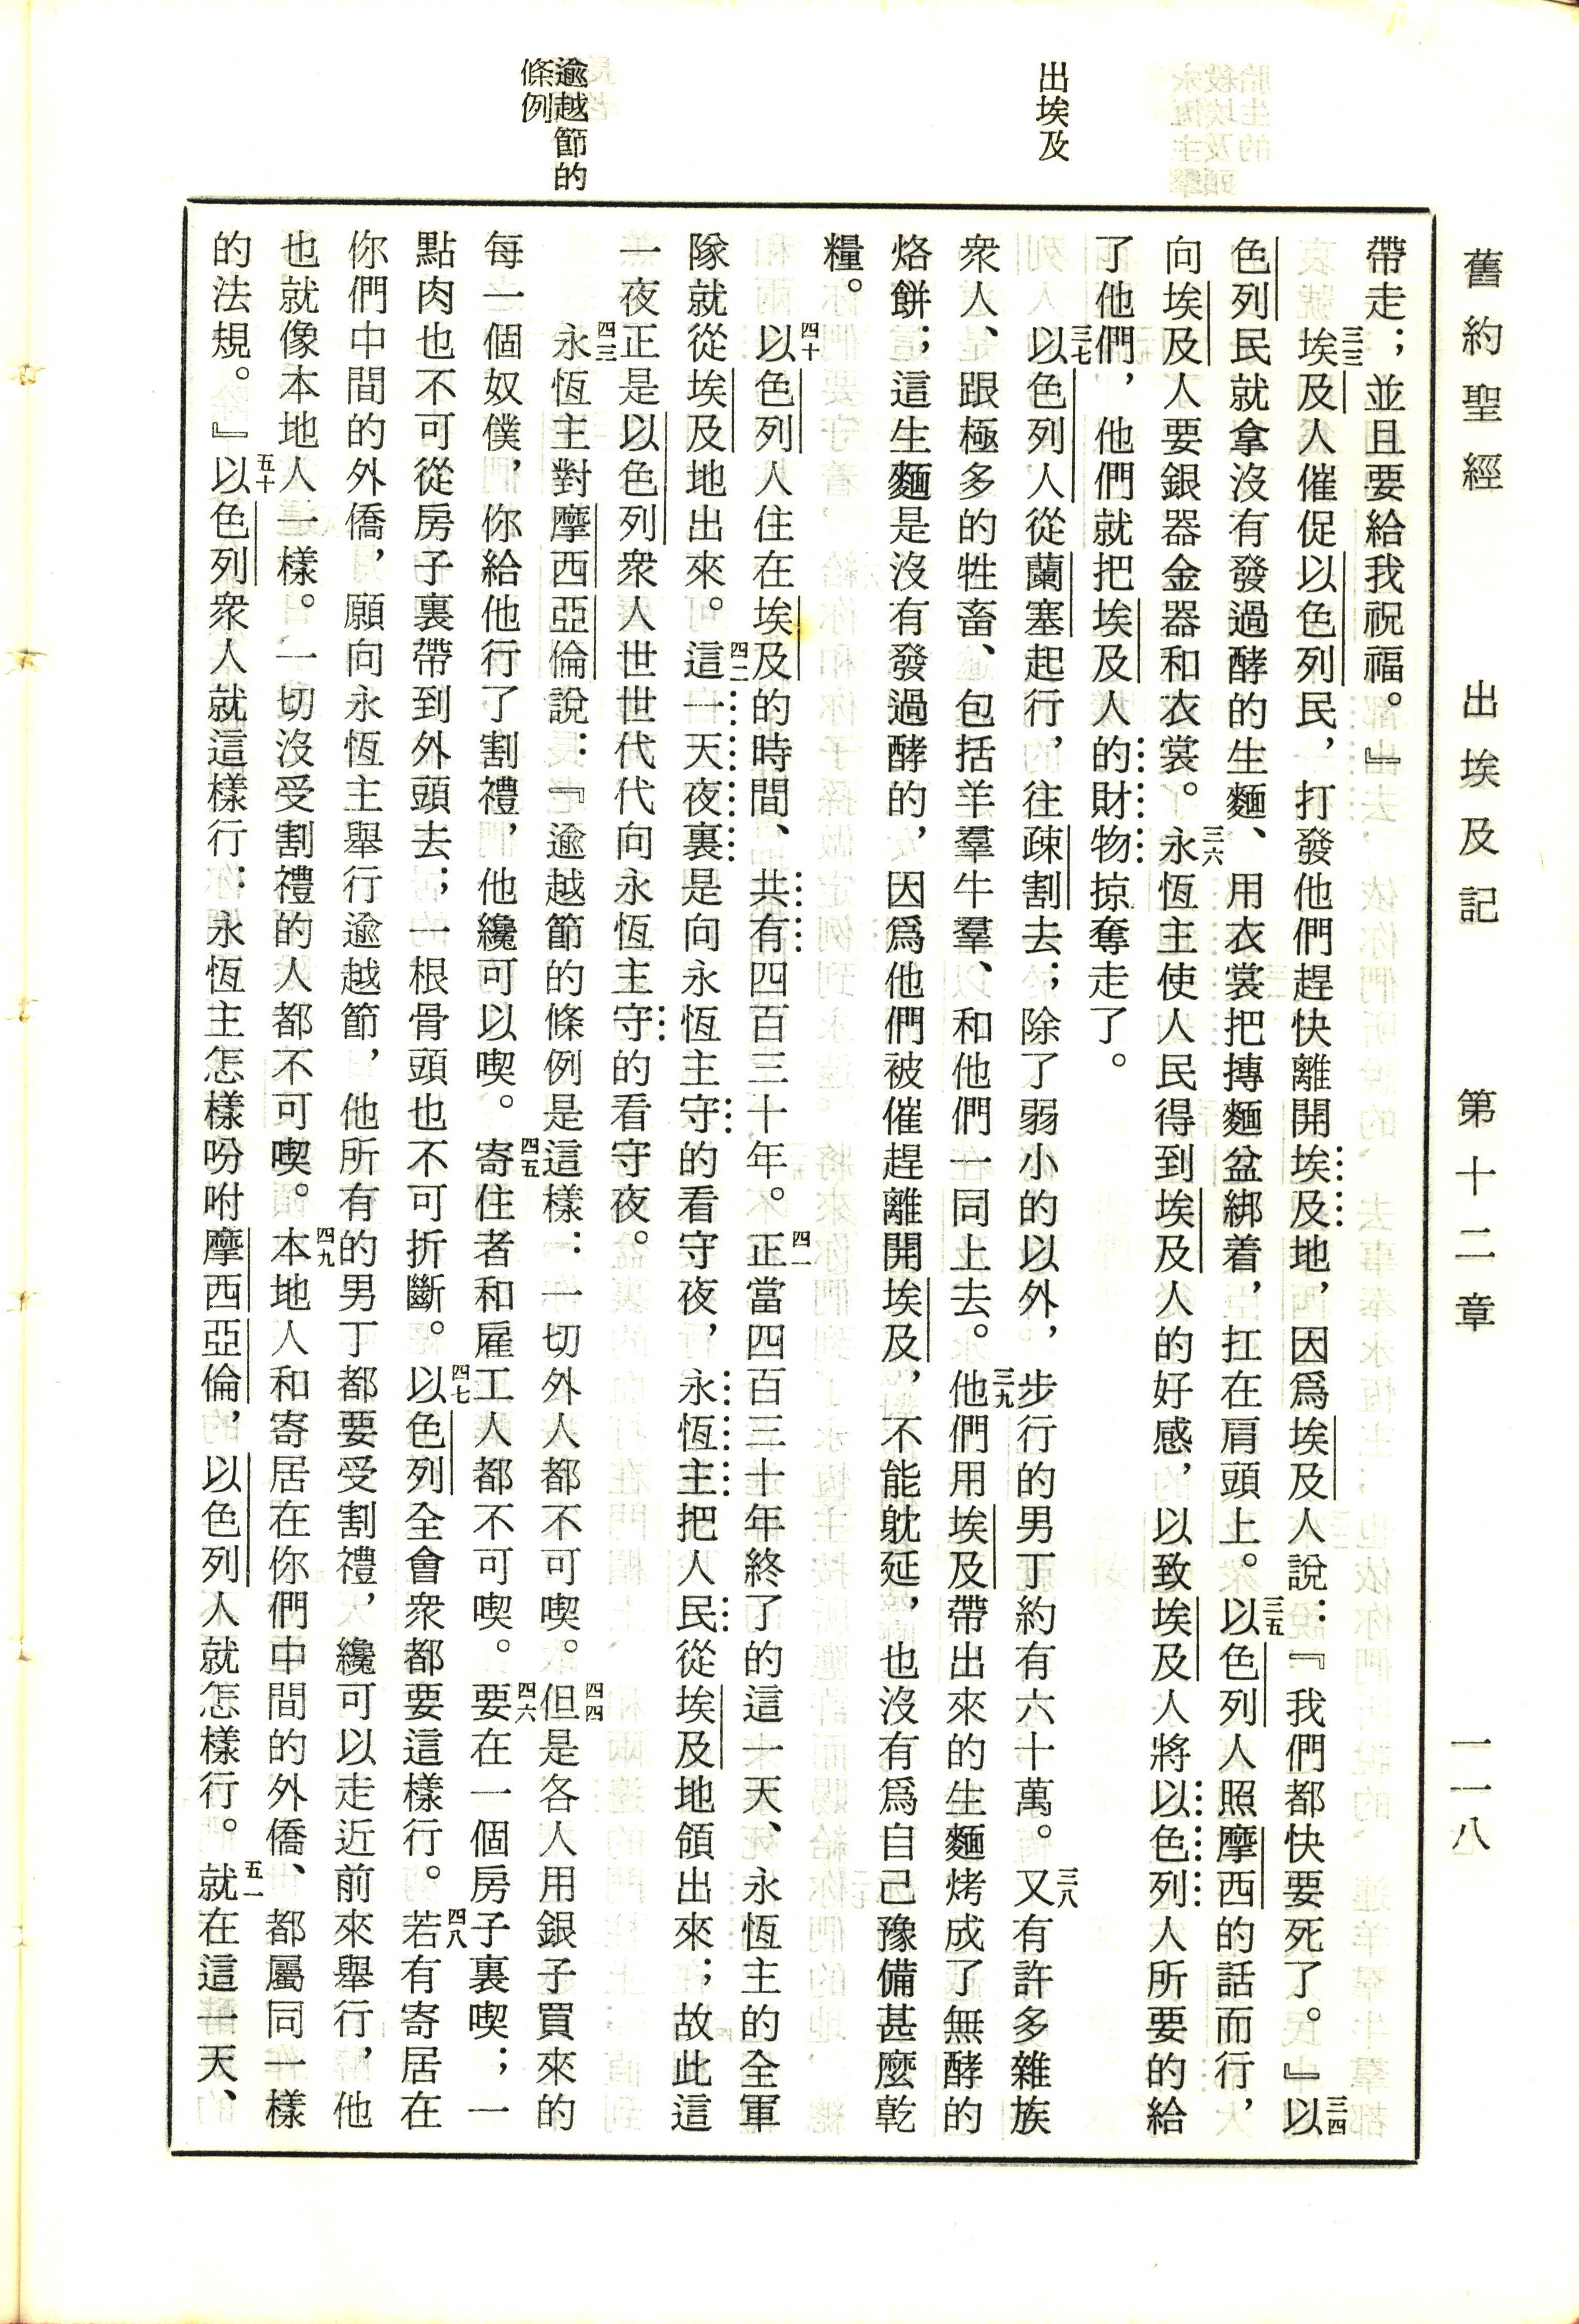 舊約聖經 出埃及記 第十二章 一一八
出埃及
逾越節的
條例
帶走；並且要給我祝福。』
三三埃及人催促以色列民，打發他們趕快離開埃及地，因爲埃及人說：『我們都快要死了。』三四以
色列民就拿沒有發過酵的生麵、用衣裳把摶麵盆綁着，扛在肩頭上。三五以色列人照摩西的話而行，
向埃及人要銀器金器和衣裳。三六永恆主使人民得到埃及人的好感，以致埃及人將以色列人所要的給
了他們，他們就把埃及人的財物掠奪走了。
三七以色列人從蘭塞起行，往疎割去；除了弱小的以外，步行的男丁約有六十萬。三八又有許多雜族
衆人、跟極多的牲畜、包括羊羣牛羣、和他們一同上去。三九他們用埃及帶出來的生麵烤成了無酵的
烙餅；這生麵是沒有發過酵的，因爲他們被催趕離開埃及，不能躭延，也沒有爲自己豫備甚麼乾
糧。
四十以色列人住在埃及的時間、共有四百三十年。四一正當四百三十年終了的這一天、永恆主的全軍
隊就從埃及地出來。四二這一天夜裏是向永恆主守的看守夜，永恆主把人民從埃及地領出來；故此這
一夜正是以色列衆人世世代代向永恆主守的看守夜。
四三永恆主對摩西亞倫說：『逾越節的條例是這樣：一切外人都不可喫。四四但是各人用銀子買來的
每一個奴僕，你給他行了割禮，他纔可以喫。四五寄住者和雇工人都不可喫。四六要在一個房子裏喫；一
點肉也不可從房子裏帶到外頭去；一根骨頭也不可折斷。四七以色列全會衆都要這樣行。四八若有寄居在
你們中間的外僑，願向永恆主舉行逾越節，他所有的男丁都要受割禮，纔可以走近前來舉行，他
也就像本地人一樣。一切沒受割禮的人都不可喫。四九本地人和寄居在你們中間的外僑、都屬同一樣
的法規。』五十以色列衆人就這樣行：永恆主怎樣吩咐摩西亞倫，以色列人就怎樣行。五一就在這一天、